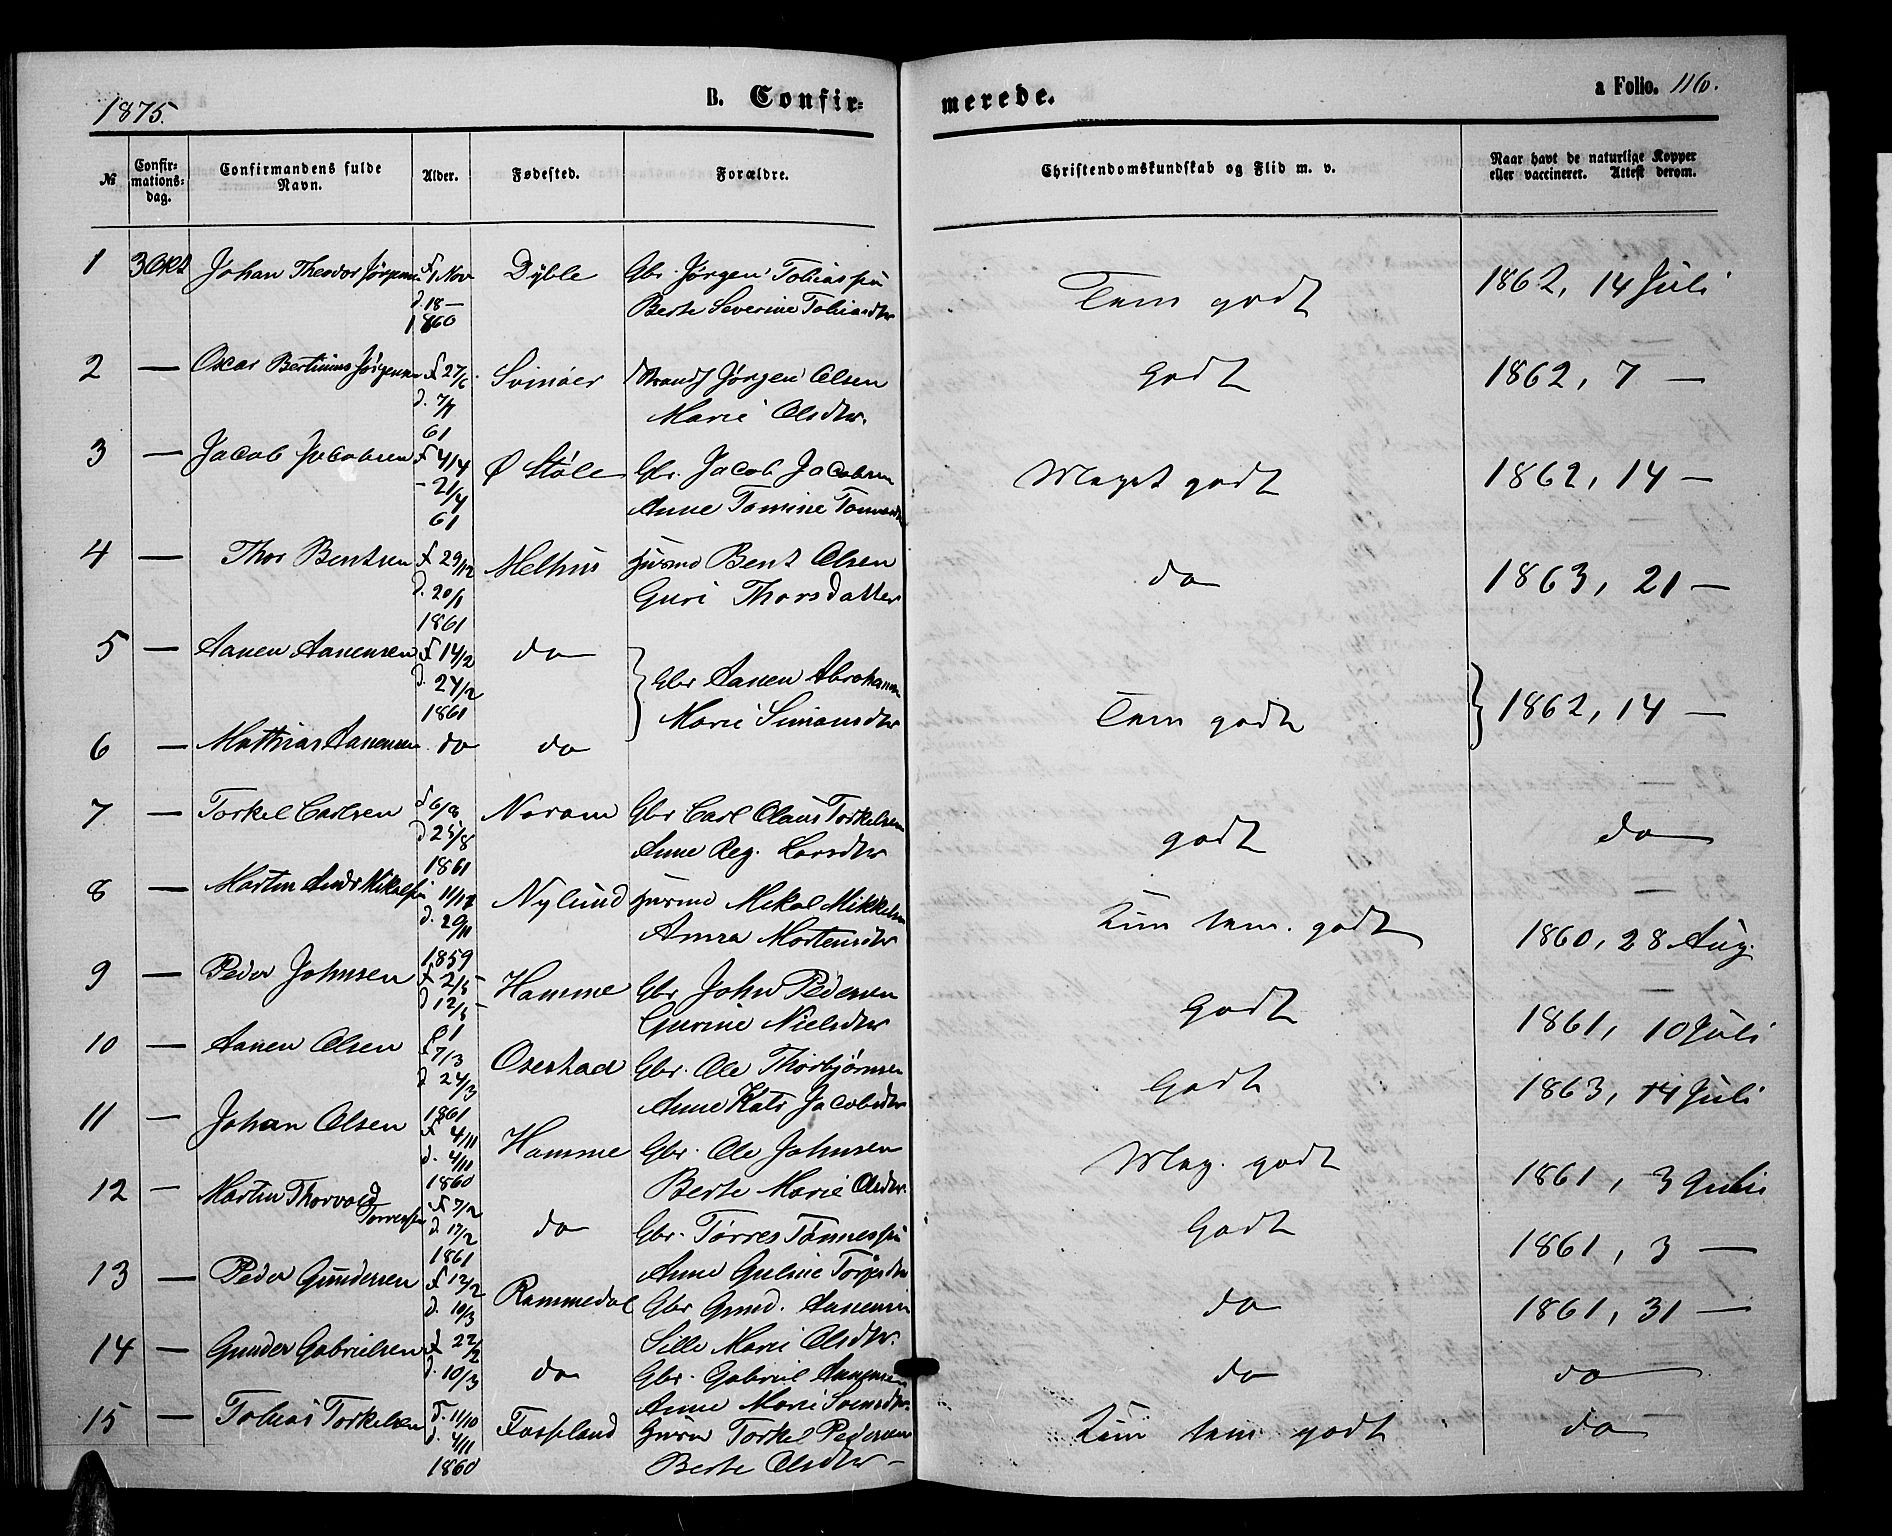 1875.
B. Confir-
merede.
a Folio. 116.
№
Confir-
mations-
dag.
Confirmandens fulde
Navn.
Alder.
Fødested.
Forældre.
Christendomskundskab og Flid m. v.
Naar havt de naturlige Kopper
eller vaccineret. Attest derom.
1 3 Okt Johan Theodor f 1 Nov Dyble Gbr. Jørgen Tobiassen Tem godt 1862, 14 Juli
d. 18 — Berte Severine Tobiasdtr
1860
2 — Oscar Bertinius Jørgensen f 27/6 Svinøer Strandf Jørgen Olsen Godt 1862, 7 —
d. 7/7 Marie Olsdtr.
61
3 — Jacob Jacobsen f 4/4 Ø Støle Gbr. Jacob Jacobsen Meget godt 1862, 14 —
- 21/4 Anne Tomine
61
4 — Thor Bentsen f 29/12 Melhus Husmd Bent Olsen do 1863, 21 —
d. 20/1 Guri Thorsdatter
1861
5 — Aanen Aanensen f 14/2 do Gbr Aanen Abrahamsen
d. 24/2 Marie Simonsdtr Tem godt 1862, 14 —
1861
6 — Mathias Aanensen do do
7 — Torkel Carlsen f 6/8 Noram Gbr Carl Olaus Torkelsen godt do
d 25/8 Anne Reg. Larsdtr
1861
8 — Martin Andr Mikalsen 11/11 Nylund Husmd Mekal Mikkelsen Kun tem. godt 1860, 28 Aug.
d. 20/11 Anna Mortensdtr
1859
9 — Peder Johnsen f 2/5 Hamme Gbr John Pedersen Godt 1861, 10 Juli
d 12/5 Gurine Nielsdtr
61
10 — Aanen Olsen f 7/3 Osestad Gbr. Ole Thorbjørnsen Godt 1863, 14 Juli
d 24/3 Anne Kats Jacobsdtr
1861
11 — Johan Olsen f 4/11 Hamme Gbr. Ole Johnsen Meg. godt 1861, 3 Juli
d. 4/11 Berte Marie Olsdtr.
1860
12 — Martin Thorvald f 7/2 do Gbr. Tørres Tønnessen Godt 1861, 3 —
Tørressen d. 17/2 Anne Guline
1861
13 — Peder Gundersen f 12/2 Rammedal Gbr Gund. Aanensen do 1861, 31 —
d. 10/3 Sille Marie Olsdtr.
14 — Gunder Gabrielsen f 22/2 do Gbr. Gabriel Aanensen do do
d. 10/3 Anne Marie Svensdtr.
15 — Tobias Torkelsen f. 11/10 Fosseland Husm Torkel Pedersen Kun tem godt do
d. 4/11 Berte Olsdtr
1860